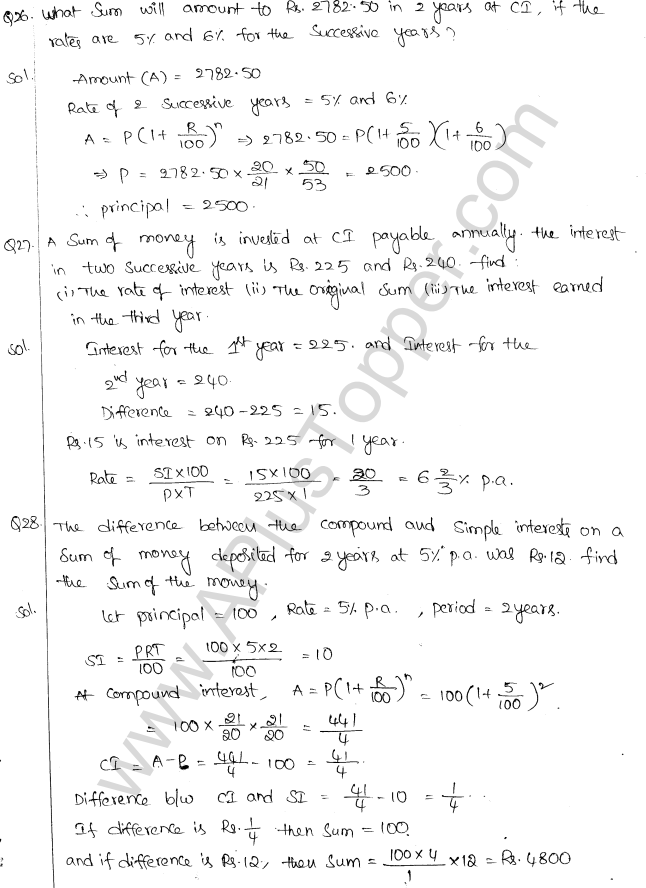 Q26. What Sum will amount to Rs. 2782.50 in 2 years at CI, if the
rates are 5% and 6% for the successive years?
Sol. Amount (A) = 2782.50
Rate of 2 successive years = 5% and 6%
A = P(1 + R/100)^n ⇒ 2782.50 = P(1 + 5/100)(1 + 6/100)
⇒ P = 2782.50 × 20/21 × 50/53 = 2500.
∴ principal = 2500.
Q27. A Sum of money is invested at CI payable annually. the interest
in two successive years is Rs. 225 and Rs. 240. find:
(i) The rate of interest (ii) The original sum (iii) The interest earned
in the third year.
Sol. Interest for the 1st year = 225. and Interest for the
2nd year = 240.
Difference = 240-225 = 15.
Rs. 15 is interest on Rs. 225 for 1 year.
Rate = SI×100/P×T = 15×100/225×1 = 20/3 = 6 2/3 % p.a.
Q28. The difference between the compound and simple interests on a
Sum of money deposited for 2 years at 5% p.a. was Rs. 12. find
the Sum of the money.
Sol. let principal = 100, Rate = 5% p.a., period = 2 years.
SI = PRT/100 = 100×5×2/100 = 10
At compound interest, A = P(1 + R/100)^n = 100(1 + 5/100)^2
= 100 × 21/20 × 21/20 = 441/4
CI = A-P = 441/4 - 100 = 41/4.
Difference b/w CI and SI = 41/4 - 10 = 1/4.
If difference is Rs. 1/4 then Sum = 100.
and if difference is Rs. 12, then Sum = 100×4/1 × 12 = Rs. 4800
www.APlusTopper.com